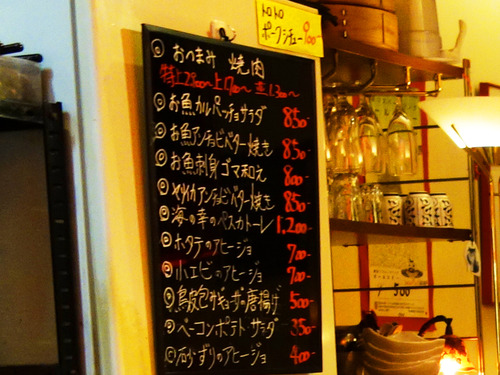 トロトロ
ポークシチュー900-
◎おつまみ 焼肉
◎お魚カルパッチョサラダ 850-
◎お魚アンチョビバター焼き 850-
◎お魚刺身ゴマ和え 800-
◎ヤリイカアンチョビバター焼き 850-
◎海の幸のペスカトーレ 1,200-
◎ホタテのアヒージョ 700-
◎小エビのアヒージョ 700-
◎鳥皮包みギョーザの唐揚げ 500-
◎ベーコンポテトサラダ 350-
◎砂ずりのアヒージョ 400-
500